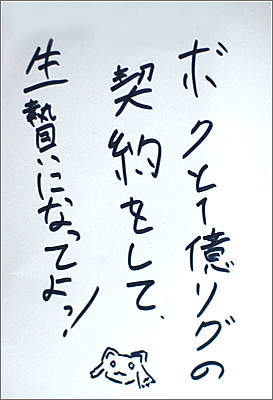 ボクと1億リグの
契約をして、
生贄になってよっ!